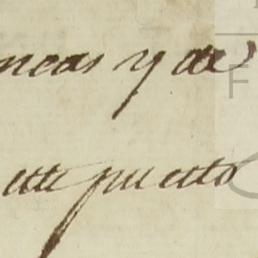 ncas y de
este puesto